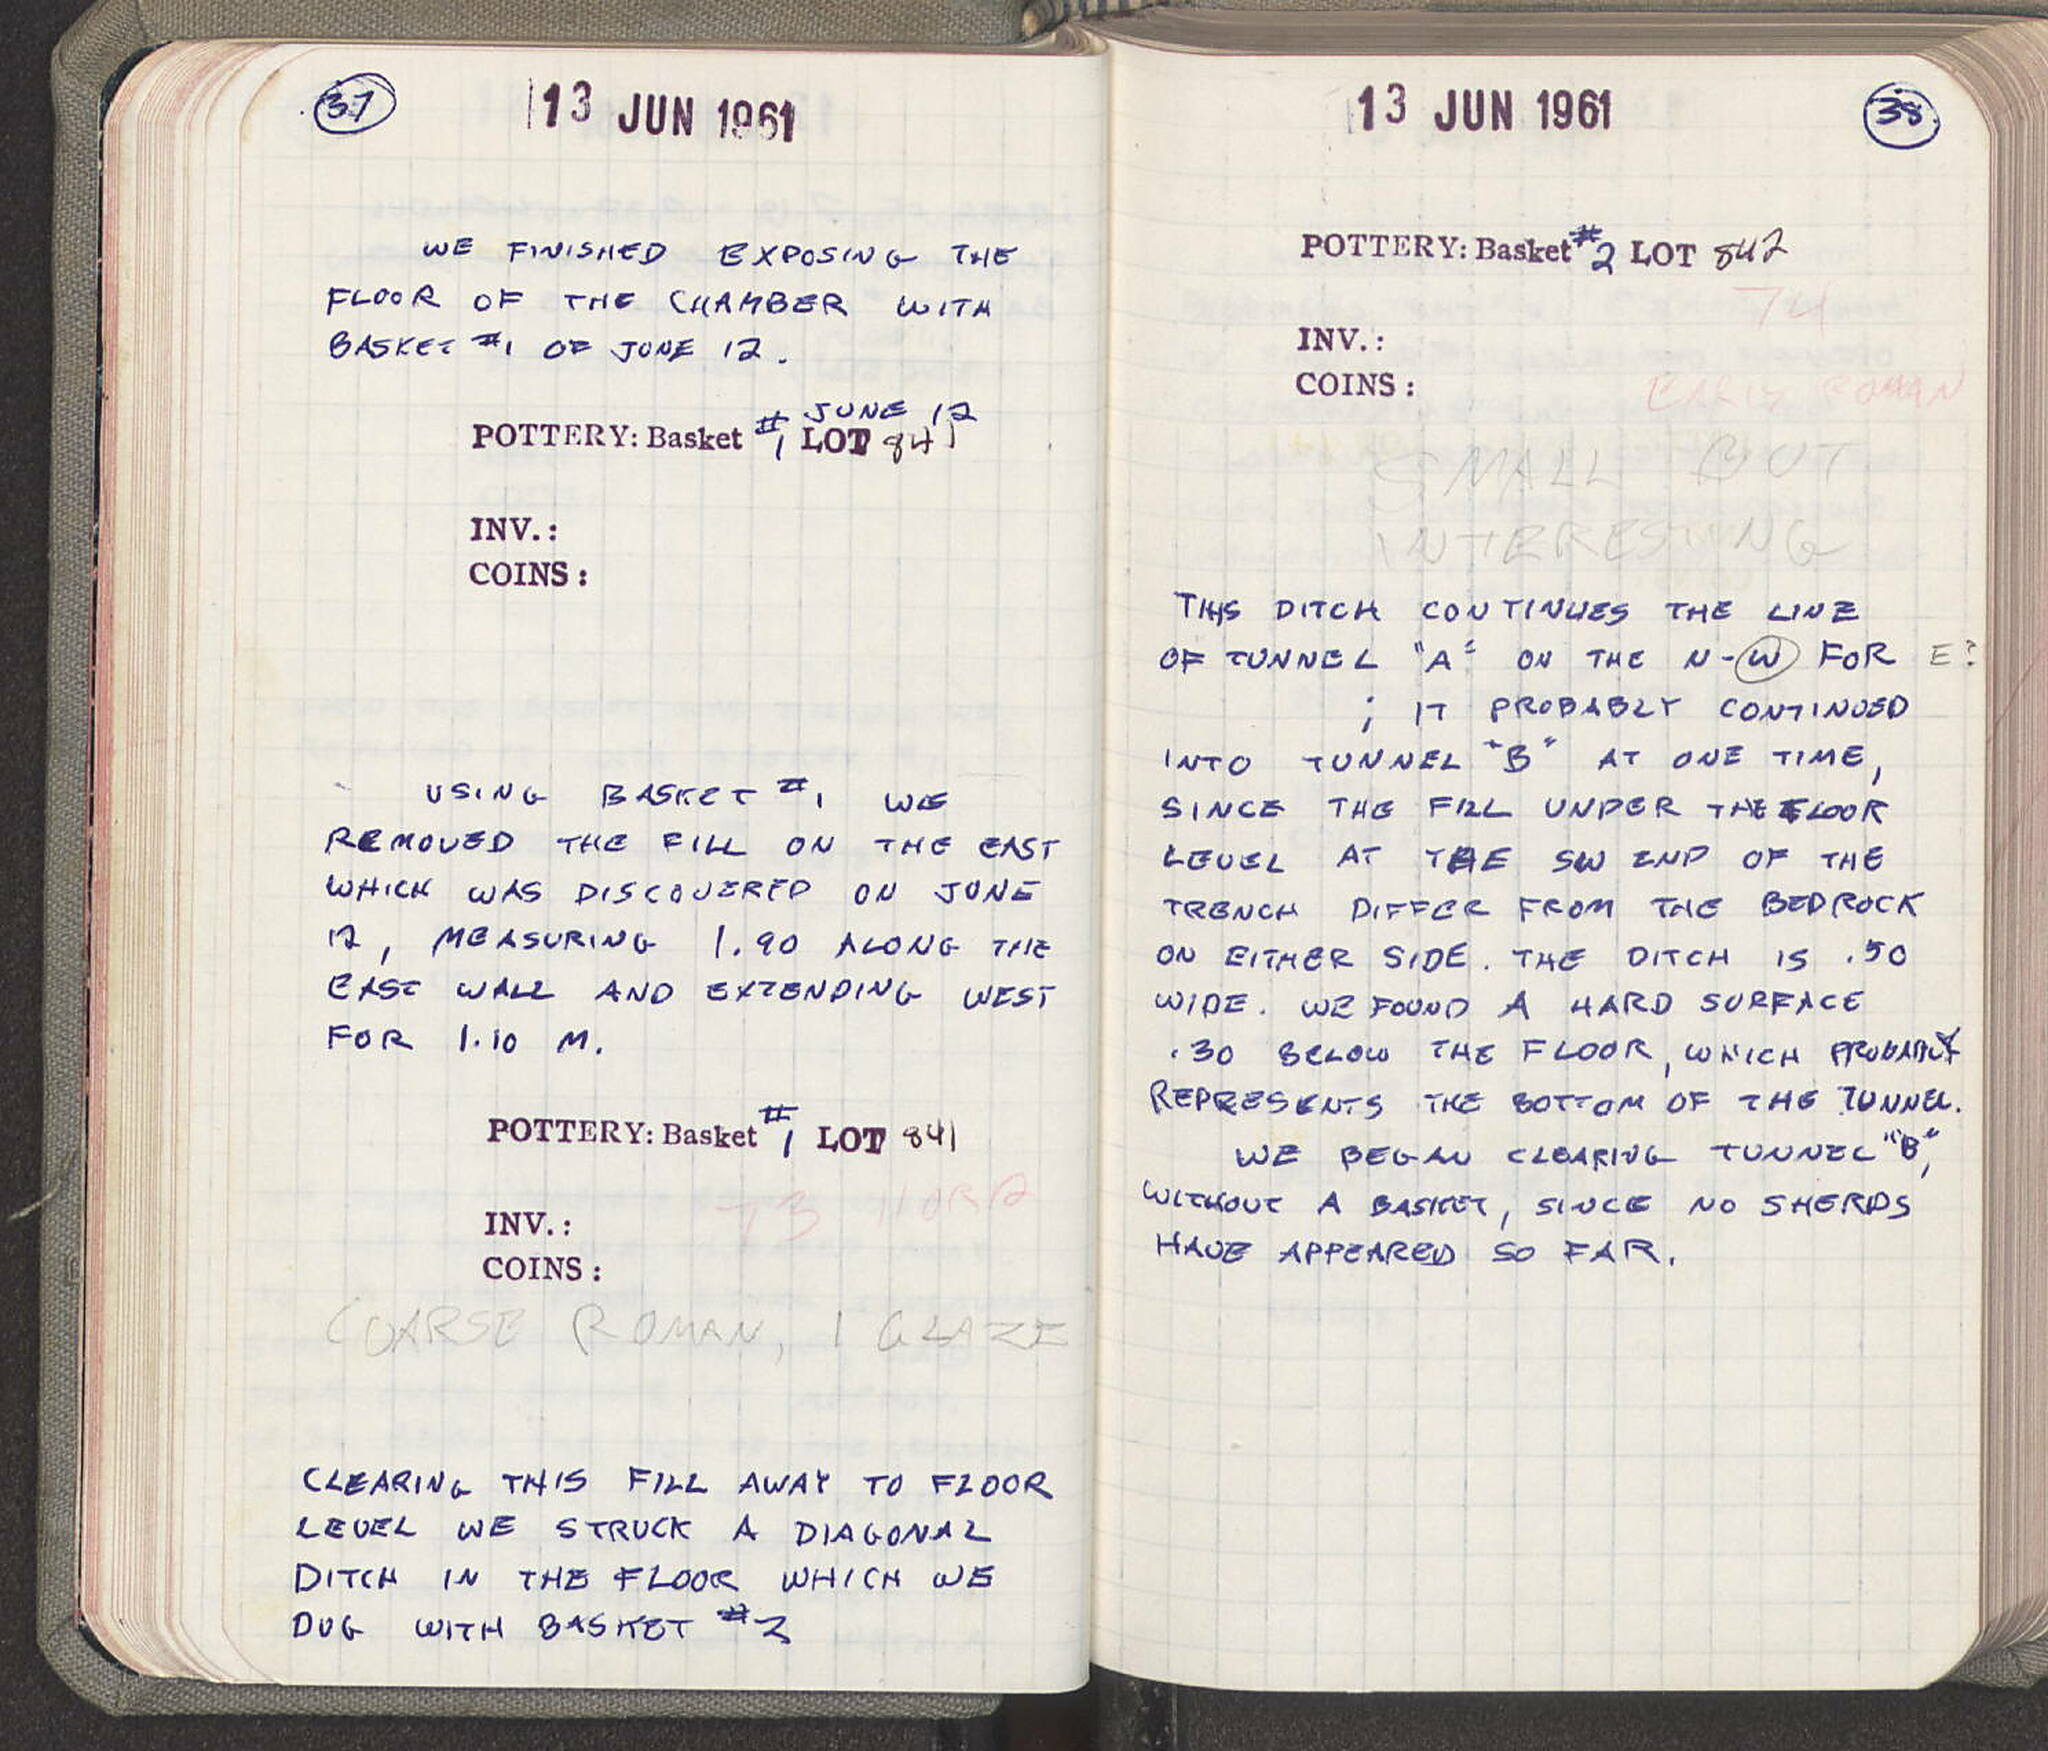 37
13 JUN 1961
WE FINISHED EXPOSING THE
FLOOR OF THE CHAMBER WITH
BASKET #1 OF JUNE 12.
JUNE 12
POTTERY: Basket #1 LOT 841
INV.:
COINS:
USING BASKET #1 WE
REMOVED THE FILL ON THE EAST
WHICH WAS DISCOVERED ON JUNE
12, MEASURING 1.90 ALONG THE
EAST WALL AND EXTENDING WEST
FOR 1.10 M.
POTTERY: Basket #1 LOT 841
INV.:
COINS:
COARSE ROMAN, 1 GLAZE
CLEARING THIS FILL AWAY TO FLOOR
LEVEL WE STRUCK A DIAGONAL
DITCH IN THE FLOOR WHICH WE
DUG WITH BASKET #2
13 JUN 1961
38
POTTERY: Basket #2 LOT 842
74
INV.:
COINS:
EARLY ROMAN
SMALL BUT
INTERESTING
THIS DITCH CONTINUES THE LINE
OF TUNNEL "A" ON THE N-W FOR E?
; IT PROBABLY CONTINUED
INTO TUNNEL "B" AT ONE TIME,
SINCE THE FILL UNDER THE FLOOR
LEVEL AT THE SW END OF THE
TRENCH DIFFER FROM THE BEDROCK
ON EITHER SIDE. THE DITCH IS .50
WIDE. WE FOUND A HARD SURFACE
.30 BELOW THE FLOOR, WHICH PROBABLY
REPRESENTS THE BOTTOM OF THE TUNNEL.
WE BEGAN CLEARING TUNNEL "B",
WITHOUT A BASKET, SINCE NO SHERDS
HAVE APPEARED SO FAR.